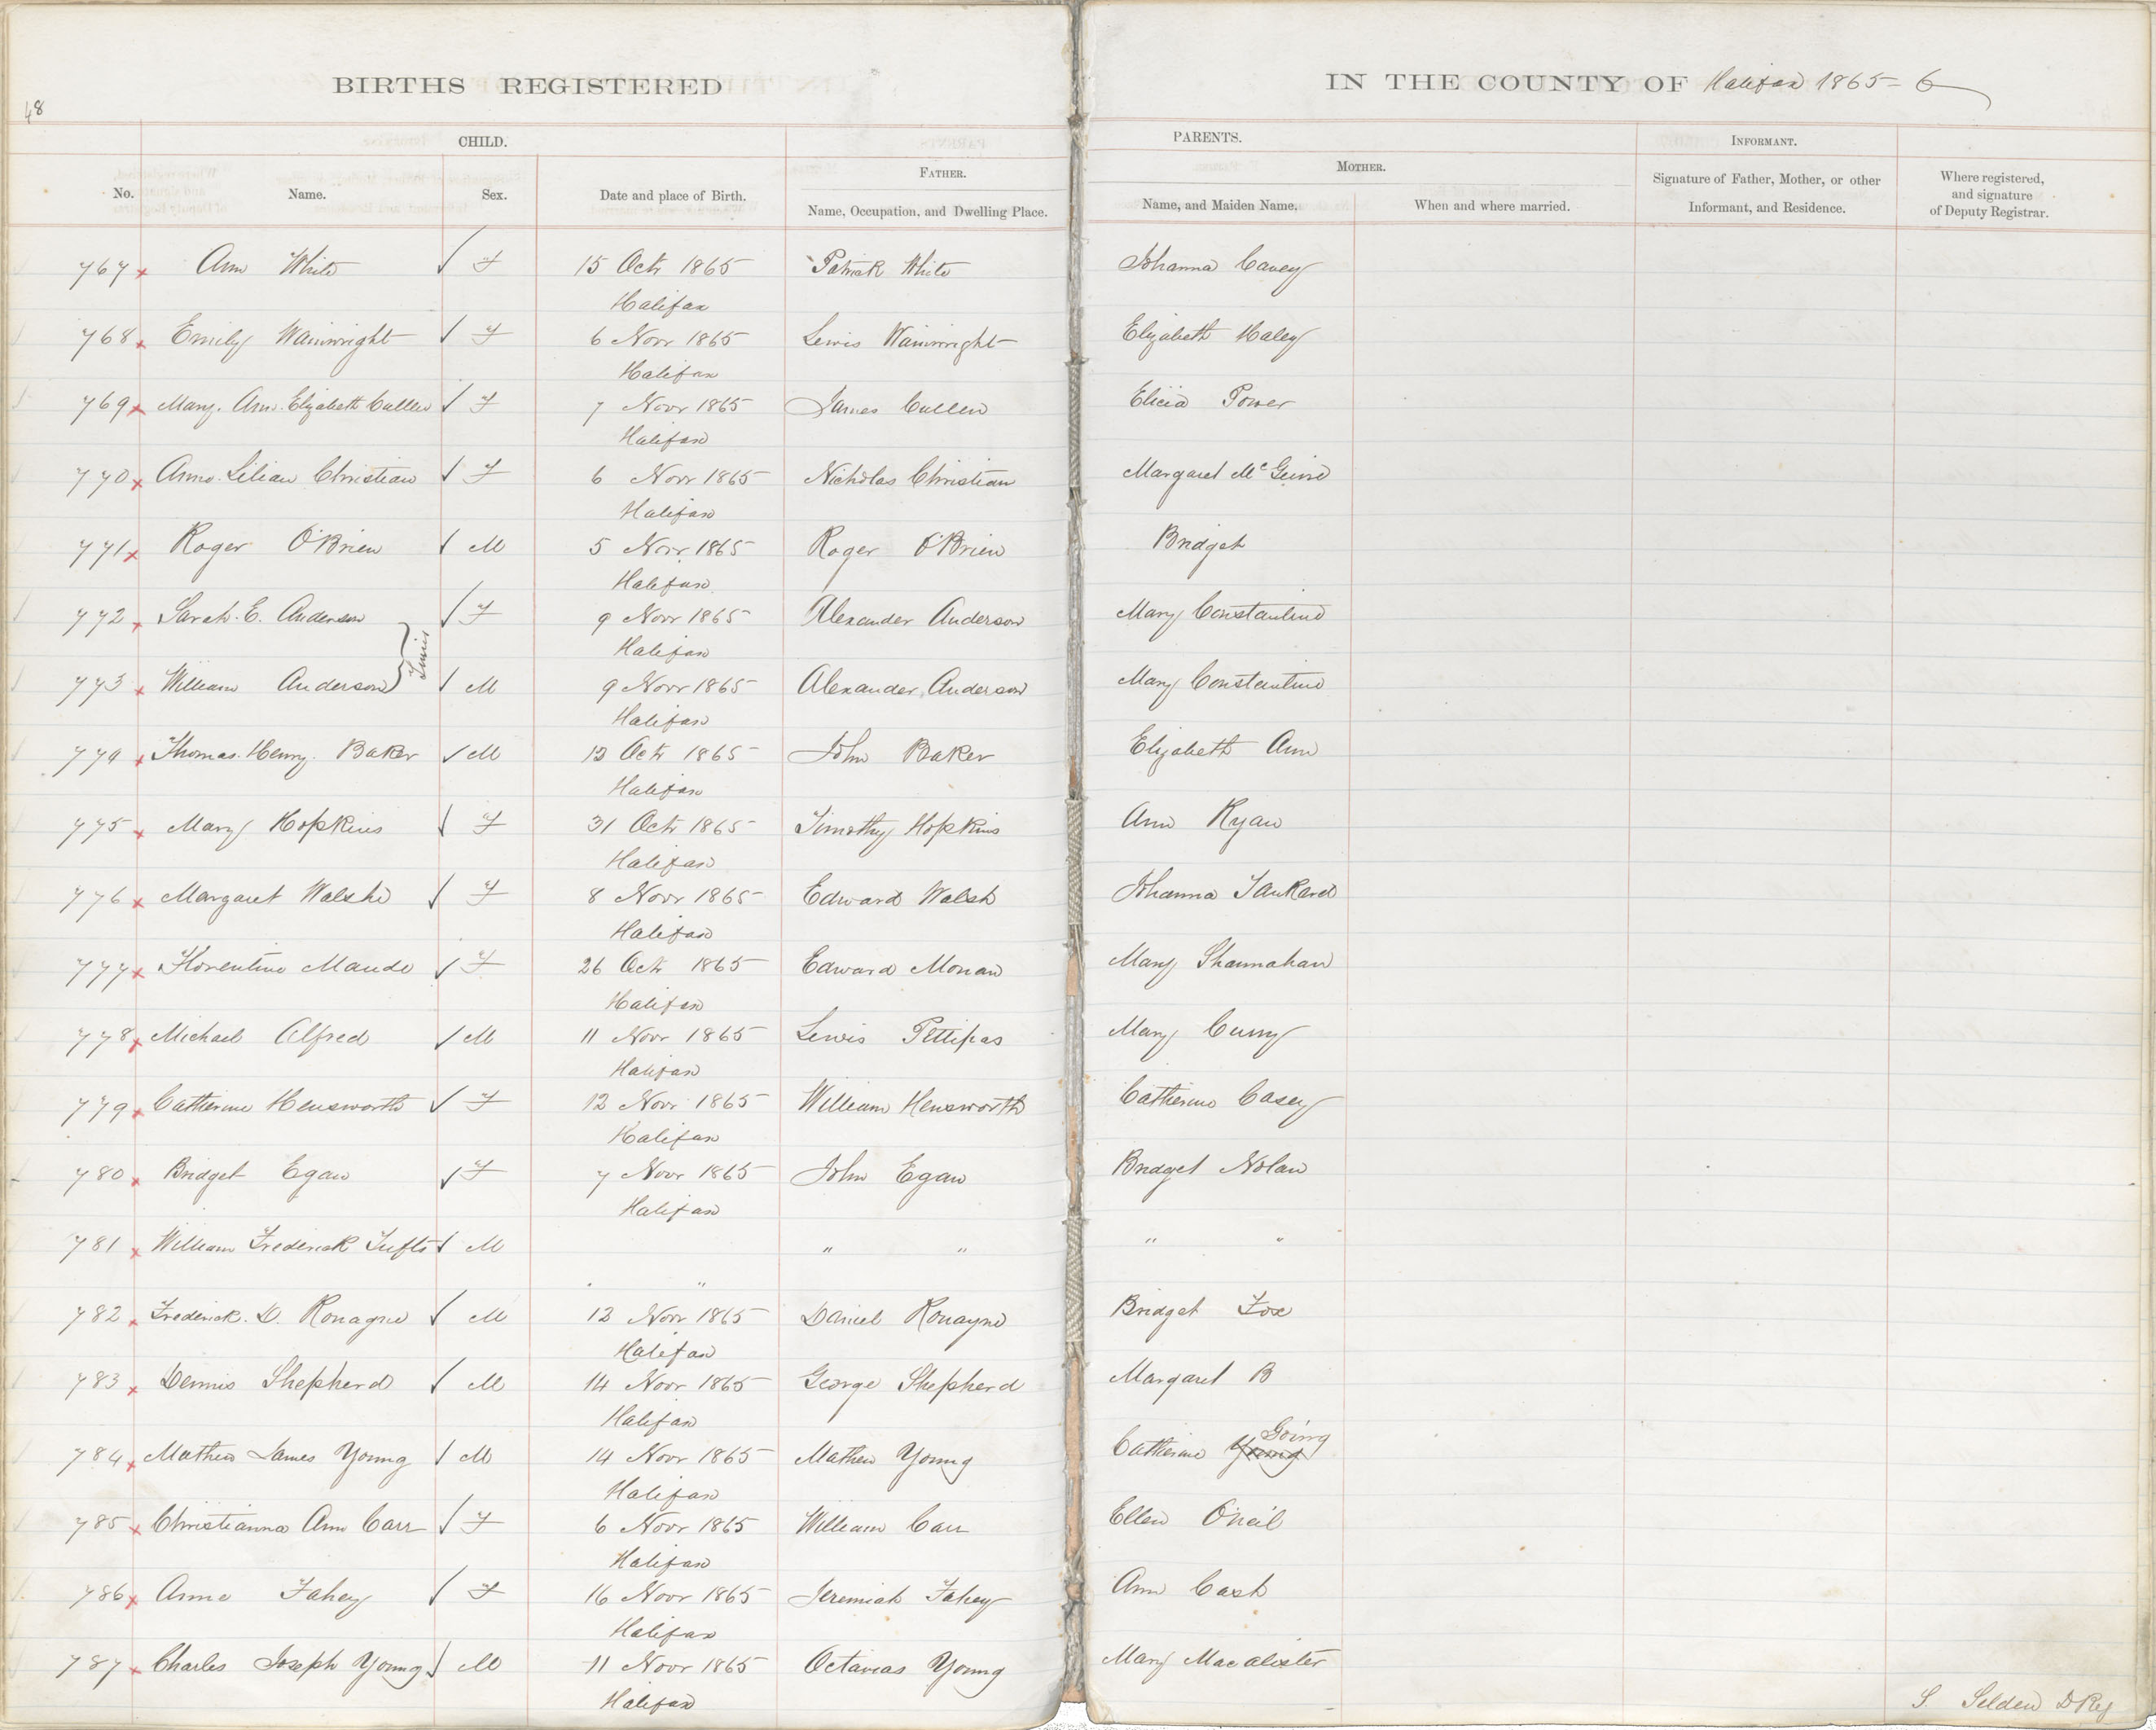 48
BIRTHS REGISTERED
IN THE COUNTY OF Halifax 1865-6
CHILD.
PARENTS.
INFORMANT.
FATHER.
MOTHER.
No. Name. Sex. Date and place of Birth. Name, Occupation, and Dwelling Place. Name, and Maiden Name. When and where married. Signature of Father, Mother, or other Informant, and Residence. Where registered, and signature of Deputy Registrar.
767 x Ann White √ F 15 Octr 1865 Patrick White Johanna Cavey
Halifax
768 x Emily Wainwright √ F 6 Novr 1865 Lewis Wainwright Elizabeth Haley
Halifax
769 x Mary. Ann. Elizabeth Cullen √ F 7 Novr 1865 James Cullen Elicia Power
Halifax
770 x Anne. Lilian Christian √ F 6 Novr 1865 Nicholas Christian Margaret McGuire
Halifax
771 x Roger O'Brien √ M 5 Novr 1865 Roger O'Brien Bridget
Halifax
772 x Sarah. E. Anderson √ F 9 Novr 1865 Alexander Anderson Mary Constantine
Twins
Halifax
773 x William Anderson √ M 9 Novr 1865 Alexander Anderson Mary Constantine
Halifax
774 x Thomas. Henry. Baker √ M 12 Octr 1865 John Baker Elizabeth Ann
Halifax
775 x Mary Hopkins √ F 31 Octr 1865 Timothy Hopkins Ann Ryan
Halifax
776 x Margaret Walsh √ F 8 Novr 1865 Edward Walsh Johanna Tankard
Halifax
777 x Florentine Maude √ F 26 Octr 1865 Edward Moran Mary Shannahan
Halifax
778 x Michael Alfred √ M 11 Novr 1865 Lewis Pettipas Mary Curry
Halifax
779 x Catherine Hensworth √ F 12 Novr 1865 William Hensworth Catherine Casey
Halifax
780 x Bridget Egan √ F 7 Novr 1865 John Egan Bridget Nolan
Halifax
781 x William Frederick Tufts √ M " " " "
" "
782 x Frederick. D. Ronayne √ M 12 Novr 1865 Daniel Ronayne Bridget Fox
Halifax
783 x Dennis Shepherd √ M 14 Novr 1865 George Shepherd Margaret B
Halifax
Going
784 x Mathew James Young √ M 14 Novr 1865 Mathew Young Catherine Young
Halifax
785 x Christianna Ann Carr √ F 6 Novr 1865 William Carr Ellen O'neil
Halifax
786 x Anne Fahey √ F 16 Novr 1865 Jeremiah Fahey Ann Cash
Halifax
787 x Charles Joseph Young √ M 11 Novr 1865 Octavias Young Mary Macalister
Halifax
S. Selden D Reg